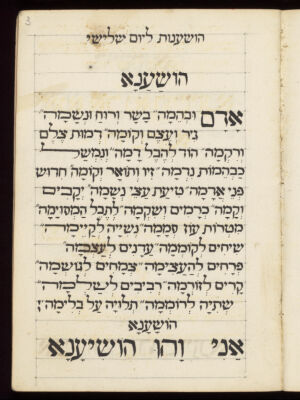 3
הושענות ליום שלישי
הושענא
אדם ובהמה״ בשר ורוח ונשמה״
גיד ועצם וקומה״ דמות צלם
ורקמה״ הוד להבל דמה״ ונמשל
כבהמות נדמה״ זיו ותואר וקומה״ חדוש
פני אדמה״ טיעת עצי נשמה״ יקבים
וקמה״ כרמים ושקמה״ לתבל המסוימה״
מטרות עוז סממה״ נשייה לקיימה״
שיחים לקוממה״ עדנים לעצמה
פרחים להעצימה״ צמחים לגושמה״
קרים לזורמה״ רביבים לשלמה״
שתיה לרוממה״ תלויה על בלימה״
הושענא
אני והו הושיענא